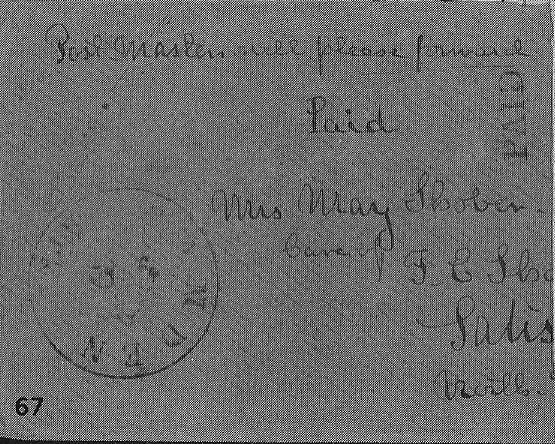 Post Master will please forward
Paid
PAID
Mrs May Shober
Care of F. C. Sho
Salis
North
67